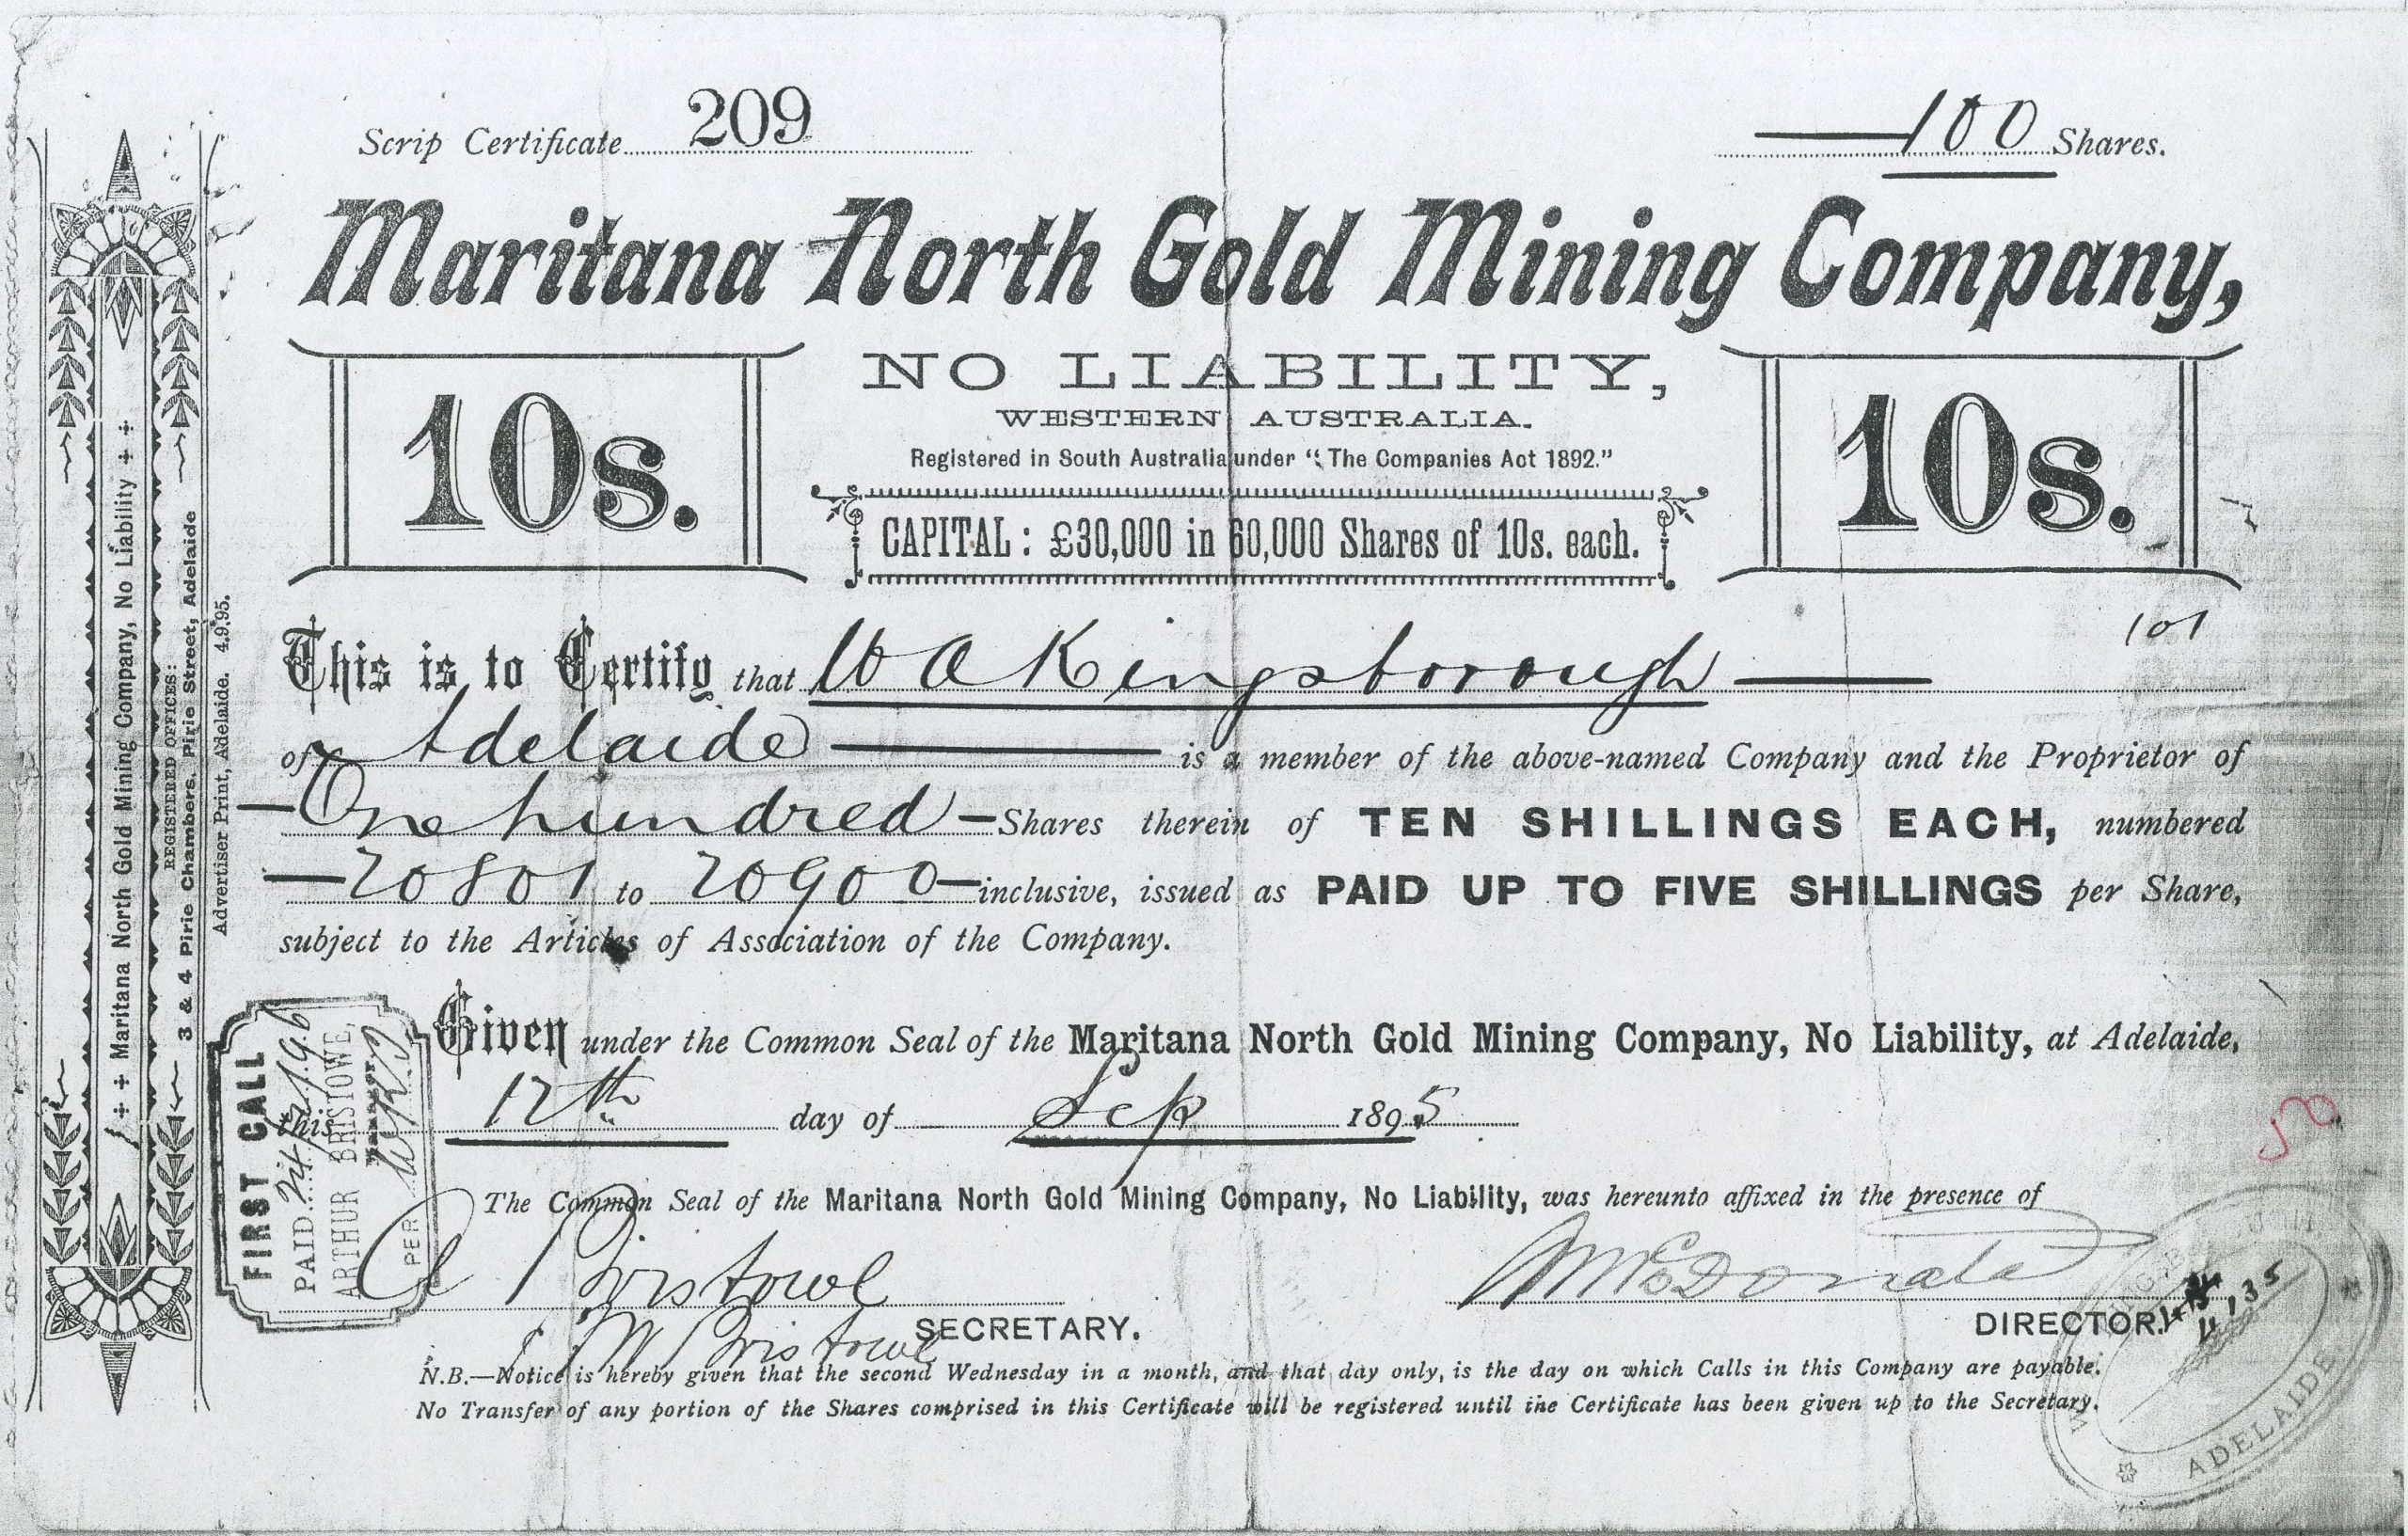 Scrip Certificate 209
100 Shares.
Maritana North Gold Mining Company,
10s.
NO LIABILITY,
WESTERN AUSTRALIA.
Registered in South Australia under "The Companies Act 1892."
CAPITAL : £30,000 in 60,000 Shares of 10s. each.
10s.
101
This is to Certify that W A Kingsborough
of Adelaide is a member of the above-named Company and the Proprietor of
One hundred Shares therein of TEN SHILLINGS EACH, numbered
20801 to 20900 inclusive, issued as PAID UP TO FIVE SHILLINGS per Share,
subject to the Articles of Association of the Company.
Given under the Common Seal of the Maritana North Gold Mining Company, No Liability, at Adelaide,
this 12th day of Sep 1895
The Common Seal of the Maritana North Gold Mining Company, No Liability, was hereunto affixed in the presence of
A Bristowe
SECRETARY.
McDonald
DIRECTOR.
N.B.—Notice is hereby given that the second Wednesday in a month, and that day only, is the day on which Calls in this Company are payable.
No Transfer of any portion of the Shares comprised in this Certificate will be registered until the Certificate has been given up to the Secretary.
Maritana North Gold Mining Company, No Liability
REGISTERED OFFICES:
3 & 4 Pirie Chambers, Pirie Street, Adelaide
Advertiser Print, Adelaide. 4.9.95.
FIRST CALL
PAID
ARTHUR BRISTOWE,
Manager
PER
Bristowe
ADELAIDE